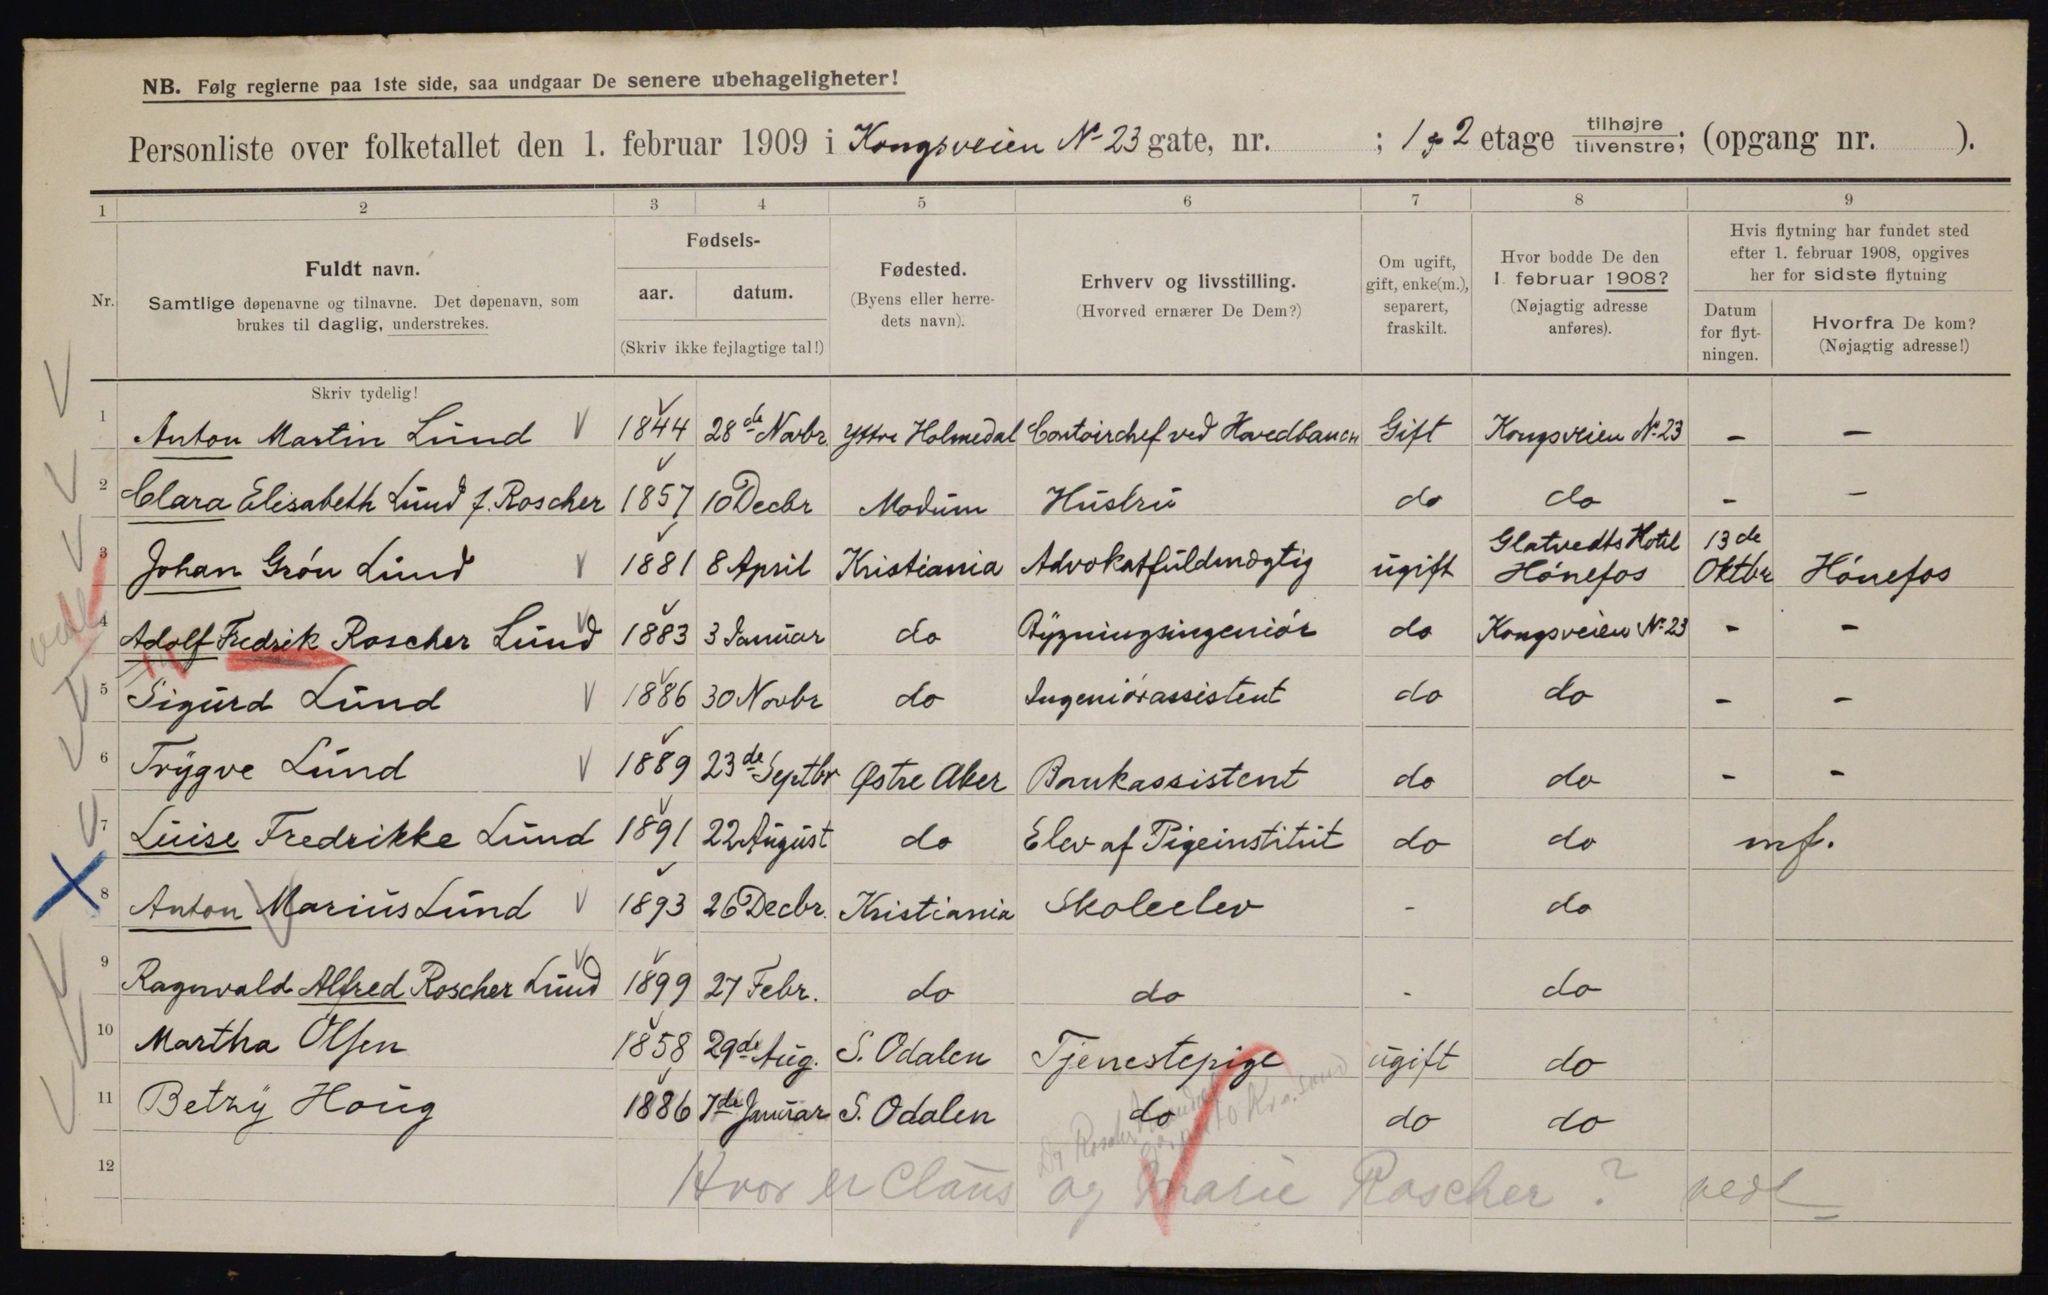 NB. Følg reglerne paa 1ste side, saa undgaar De senere ubehageligheter!
Personliste over folketallet den 1. februar 1909 i Kongsveien No 23 gate, nr. ; 1 & 2 etage tilhøjre tilvenstre; (opgang nr. ).
1 2 3 4 5 6 7 8 9
Nr.
Fuldt navn.
Samtlige døpenavne og tilnavne. Det døpenavn, som
brukes til daglig, understrekes.
Fødsels-
aar. datum.
(Skriv ikke fejlagtige tal!)
Fødested.
(Byens eller herre-
dets navn).
Erhverv og livsstilling.
(Hvorved ernærer De Dem?)
Om ugift,
gift, enke(m.),
separert,
fraskilt.
Hvor bodde De den
1. februar 1908?
(Nøjagtig adresse
anføres).
Hvis flytning har fundet sted
efter 1. februar 1908, opgives
her for sidste flytning
Datum
for flyt-
ningen.
Hvorfra De kom?
(Nøjagtig adresse!)
Skriv tydelig!
1 Anton Martin Lund 1844 28de Novbr. Yttre Holmedal Contoirchef ved Hovedbanen Gift Kongsveien No 23 – –
2 Clara Elisabeth Lund f. Roscher 1857 10 Decbr Modum Hustru do do – –
3 Johan Grón Lund 1881 8 April Kristiania Advokatfuldmægtig ugift Glatvedts Hotel Hónefos 13de Oktbr Hónefos
4 Adolf Fredrik Roscher Lund 1883 3 Januar do Bygningsingeniór do Kongsveien No 23 – –
5 Sigurd Lund 1886 30 Novbr do Ingeniórassistent do do – –
6 Trygve Lund 1889 23de Septbr Østre Aker Bankassistent do do – –
7 Luise Fredrikke Lund 1891 22 August do Elev af Pigeinstitut do do mf.
8 Anton Marius Lund 1893 26 Decbr. Kristiania Skoleelev - do
9 Ragnvald Alfred Roscher Lund 1899 27 Febr. do do - do
10 Martha Olsen 1858 29de Aug. S. Odalen Tjenestepige ugift do
11 Betzy Houg 1886 7de Januar S. Odalen do do do
12 Hvor er Claus og Marie Roscher? vedl